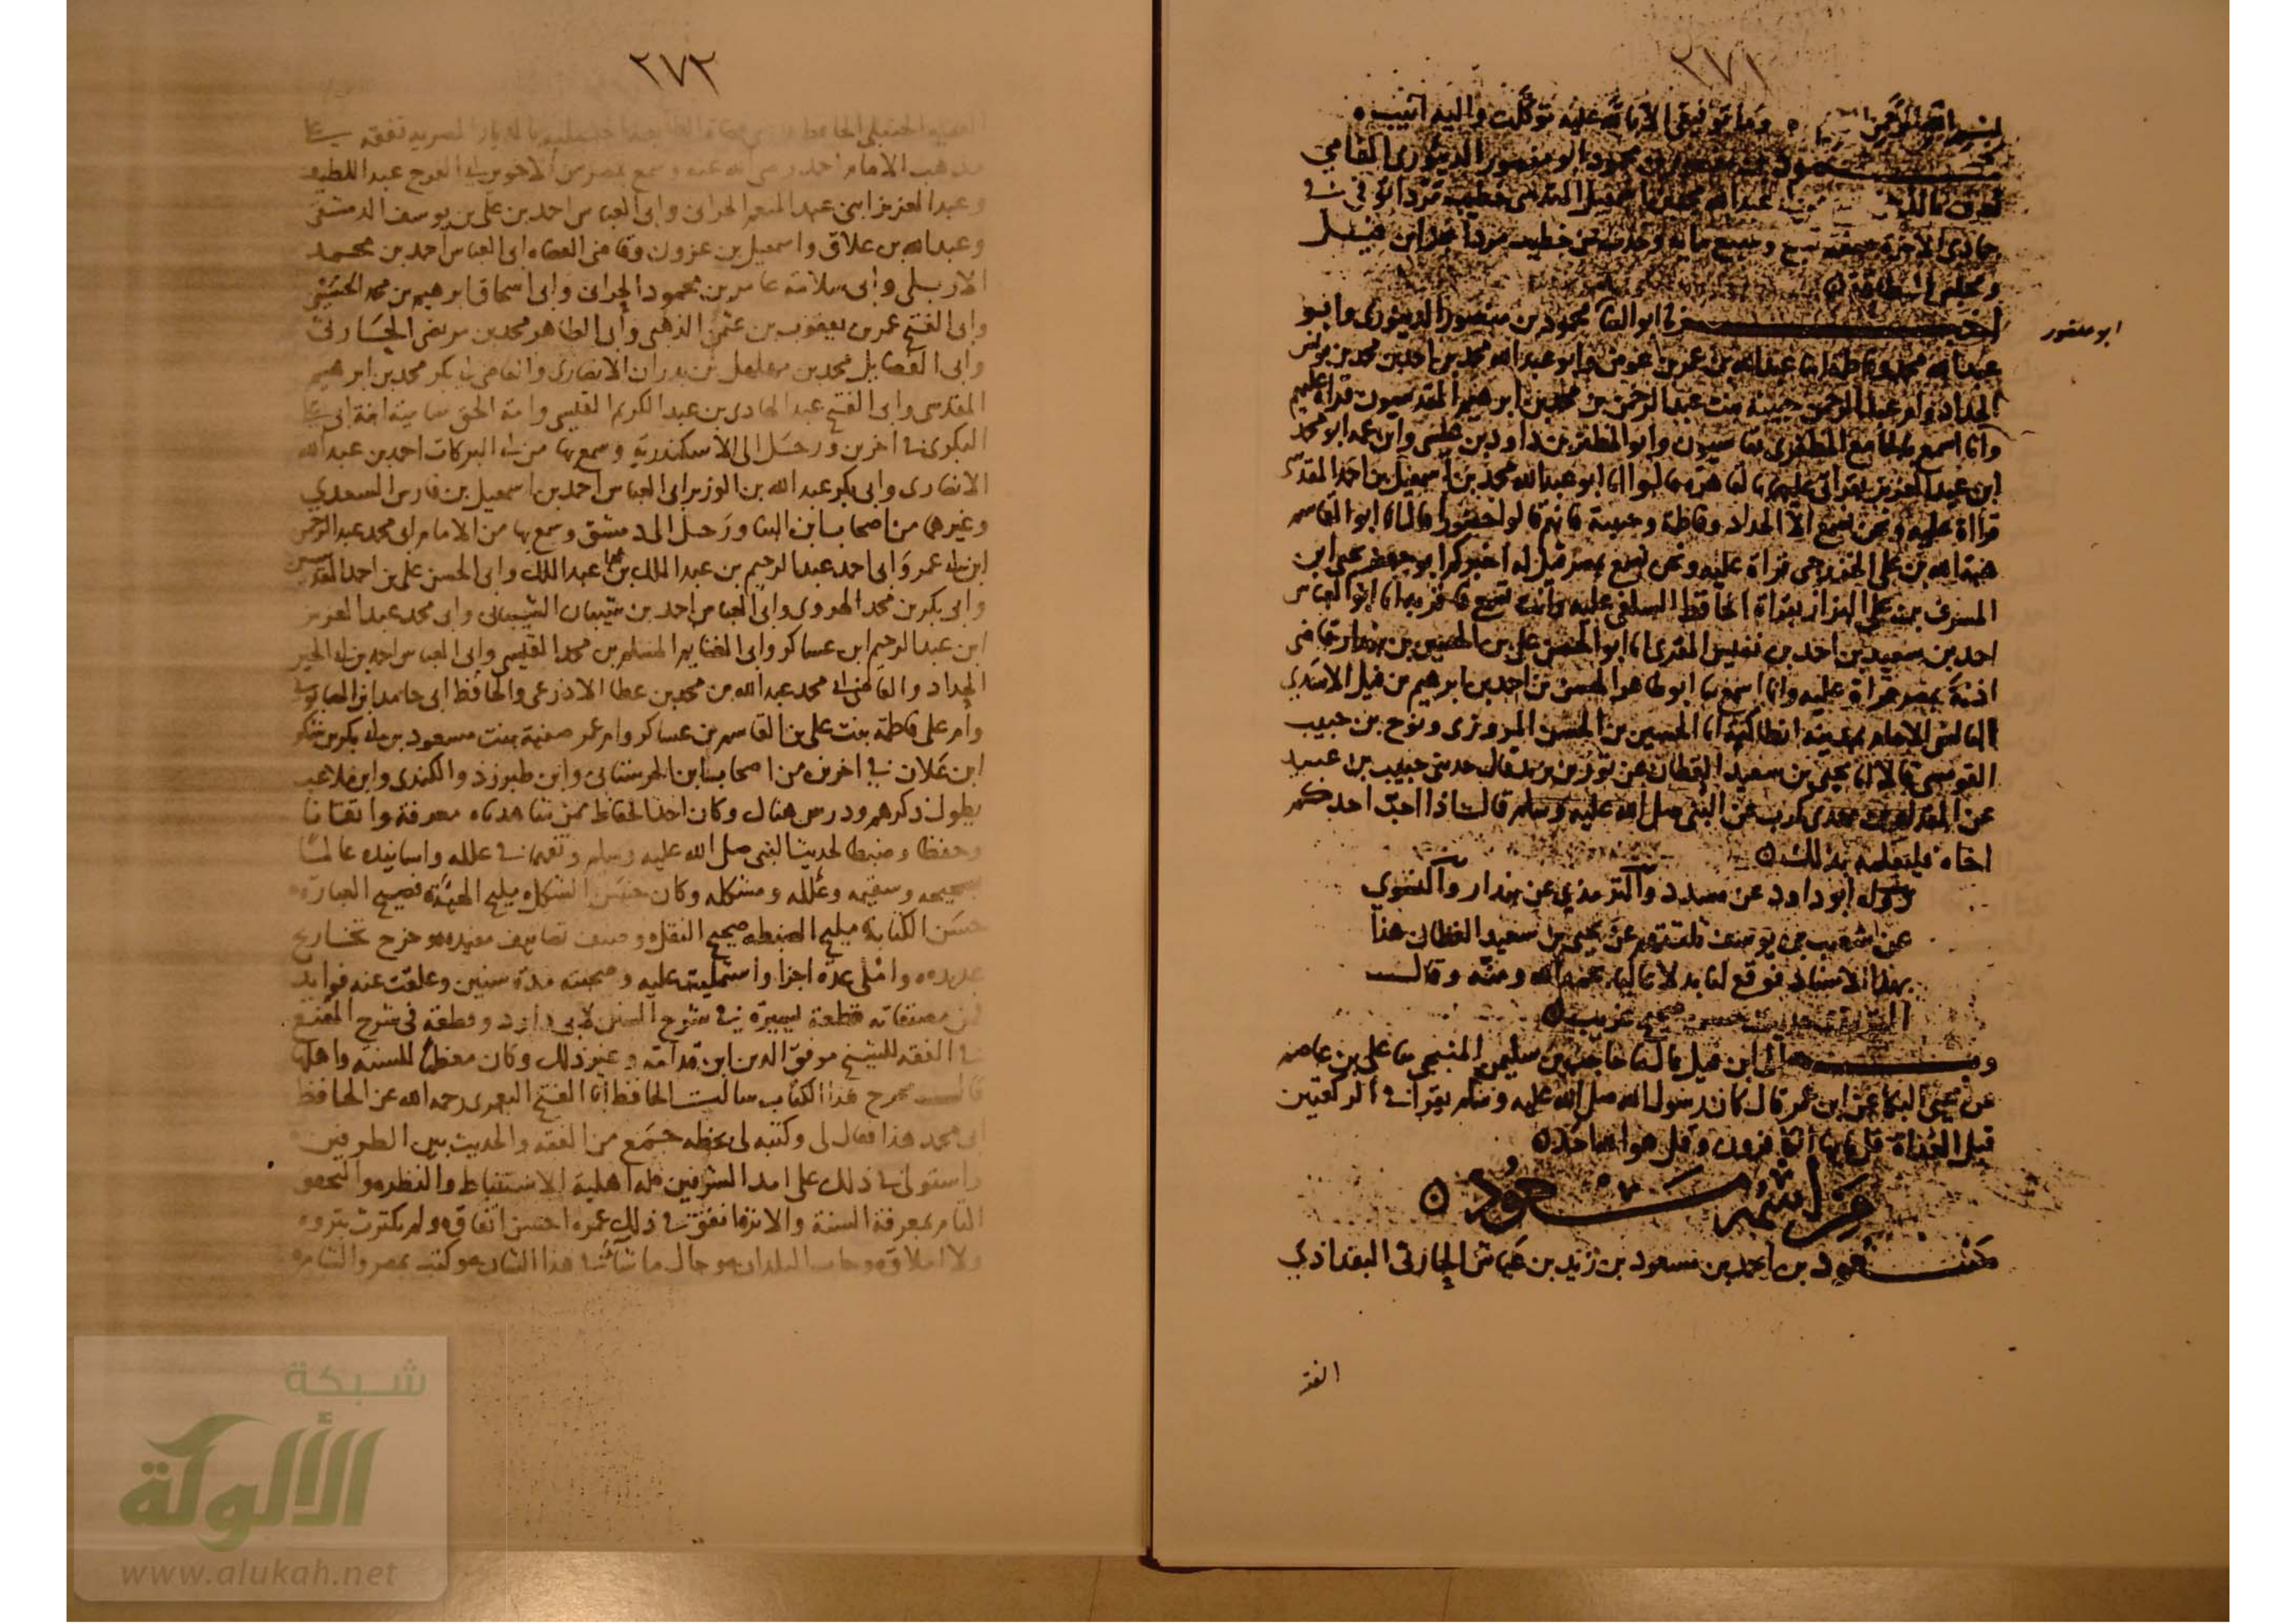 ٢٧١
بسم الله الرحمن وما توفيقي الا بالله عليه توكلت واليه انيب
محمود بن منصور بن محمود ابو منصور الدينوري
عبد الله محمد بن اسمعيل المقدسي خطيب مردا توفي في
جمادى الاخرة سنة تسع وسبع مايه وحدث عن خطيب مردا
ابو منصور
اخبرنا ابو الثنا محمود بن منصور الدينوري وابو
عبد الله محمد وفاطمة ابنا عبد الله بن عمر بن عوض وابو عبد الله محمد بن احمد بن محمد بن
الحداد وام عبد الرحمن حبيبة بنت عبد الرحمن بن محمد بن ابرهيم المقدسيون قراة عليهم
وانا اسمع بالجامع المظفري بقاسيون وابو المظفر بن داود بن عيسى وابن عمه ابو محمد
ابن عبد العزيز بقراتي عليهما بالقاهرة قالوا انا ابو عبد الله محمد بن اسمعيل بن احمد المقدسي
قراة عليه ونحن نسمع الا الحداد وفاطمة وحبيبة فانهم قالوا حضورا قال انا ابو القاسم
هبة الله بن علي الخزرجي قراة عليه ونحن نسمع بمصر قيل له اخبركم ابو جعفر يحيى ابن
المشرف بن علي البزاز بقراة الحافظ السلفي عليه وانت تسمع فاقر به انا ابو العباس
احمد بن سعيد بن احمد بن نفيس المقرى انا ابو الحسن علي بن الحسين بن بندار قاضي
اذنة بمصر قراة عليه وانا اسمع نا ابو طاهر الحسن بن احمد بن ابرهيم بن فيل الاسدي
البالسي الامام بمدينة انطاكية نا الحسين بن الحسن المروزي ونوح بن حبيب
القومسي قالا نا يحيى بن سعيد القطان عن ثور بن يزيد قال حدثني حبيب بن عبيد
عن المقدام بن معدي كرب عن النبي صلى الله عليه وسلم قال اذا احب احدكم
اخاه فليعلمه بذلك
رواه ابو داود عن مسدد والترمذي عن بندار والنسوي
عن شعيب بن يوسف ثلثتهم عن يحيى بن سعيد القطان هذا
بهذا الاسناد فوقع لنا بدلا عاليا بحمد الله ومنه وقال
الترمذي حديث حسن صحيح غريب
وبه الى ابن فيل قال نا حاجب بن سليمن المنبجي نا علي بن عاصم
عن يحيى البكا عن ابن عمر قال كان رسول الله صلى الله عليه وسلم يقرا في الركعتين
قبل الغداة قل يا ايها الكافرون وقل هو الله احد
من اسمه مسعود
مسعود بن احمد بن مسعود بن زيد بن عياش الحارثي البغدادي
الفقـ
٢٧٢
الفقيه الحنبلي الحافظ بالديار المصريه تفقه على
مذهب الامام احمد رضي الله عنه وسمع بمصر من الاخوين ابي الفرج عبد اللطيف
وعبد العزيز ابني عبد المنعم الحراني وابي العباس احمد بن علي بن يوسف الدمشقي
وعبد الله بن علاق واسمعيل بن عزون وقاضي القضاه ابي العباس احمد بن محمد
الاربلي وابي سلامة عامر بن محمود الحراني وابي اسحاق ابرهيم بن محمد
وابي الفتح عمر بن يعقوب بن عثمن الذهبي وابي الطاهر محمد بن مرتضى الحارثي
وابي الفضايل محمد بن مهلهل بن بدران الانصاري والقاضي ابي بكر محمد بن ابرهيم
المقدسي وابي الفتح عبد الهادي بن عبد الكريم القيسي وامة الحق شامية ابنة ابي علي
البكري في اخرين ورحل الى الاسكندرية وسمع بها من ابي البركات احمد بن عبد الله
الانصاري وابي بكر عبد الله بن الوزير ابي العباس احمد بن اسمعيل بن فارس السعدي
وغيرهما من اصحاب ابن البنا ورحل الى دمشق وسمع بها من الامام ابي محمد عبد الرحمن
ابن ابي عمر وابي احمد عبد الرحيم بن عبد الملك بن عبد الملك وابي الحسن علي بن احمد المقدسيين
وابي بكر بن محمد الهروي وابي العباس احمد بن شيبان الشيباني وابي محمد عبد العزيز
ابن عبد الرحيم ابن عساكر وابي الغنايم المسلم بن محمد القيسي وابي العباس احمد بن ابي الخير
الحداد والقاضي ابي محمد عبد الله بن محمد بن عطا الاذرعي والحافظ ابي حامد ابن الصابوني
وام علي فاطمة بنت علي بن القاسم بن عساكر وام عمر صفية بنت مسعود بن ابي بكر بن شكر
ابن علان في اخرين من اصحاب ابن الحرستاني وابن طبرزذ والكندي وابن ملاعب
يطول ذكرهم ودرس هناك وكان احد الحفاظ ممن شاهدناه معرفة واتقانا
وحفظا وضبطا لحديث النبي صلى الله عليه وسلم وتفهما في علله واسانيده عالما
بصحيحه وسقيمه وعلله ومشكله وكان حسن الشكل مليح الهيئة فصيح العباره
حسن الكتابة مليح الضبط صحيح النقل وصنف تصانيف مفيده وخرج تخاريج
عديده واملى عدة اجزا واستمليت عليه وصحبته مدة سنين وعلقت عنه فوايد
من مصنفاته قطعة كبيرة في شرح السنن لابي داود وقطعة في شرح المقنع
في الفقه للشيخ موفق الدين ابن قدامة وغير ذلك وكان معظما للسنة واهلها
قال مخرج هذا الكتاب سالت الحافظ ابا الفتح اليعمري رحمه الله عن الحافظ
ابي محمد هذا فقال لي وكتبه لي بخطه جمع من الفقه والحديث بين الطرفين
واستولى في ذلك على امد الشرفين فله اهلية الاستنباط والنظر والتحقق
التام بمعرفة السنة والاثر فانفق في ذلك عمره احسن انفاق ولم يكترث بثروه
ولا املاق وجاب البلدان وجال ما شا في هذا الشان وكتب بمصر والشام
شبكة
الألوكة
www.alukah.net